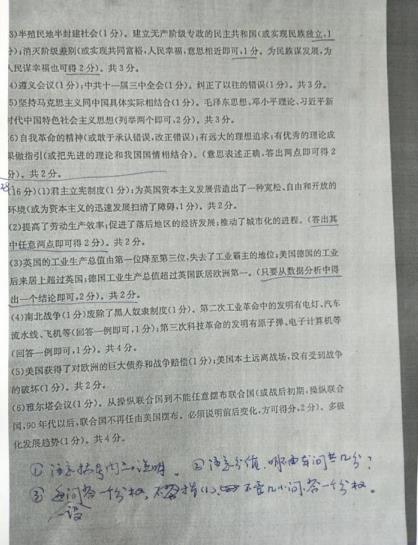 3)半殖民地半封建社会(1分)。建立无产阶级专政的民主共和国(或实现民族独立,1
分);消灭阶级差别(或实现共同富裕,人民幸福,意思相近即可,1分。为民族谋发展,为
人民谋幸福也可得2分)。共3分。
4)遵义会议(1分);中共十一届三中全会(1分)。纠正了以往的错误(1分)。共3分。
5)坚持马克思主义同中国具体实际相结合(1分)。毛泽东思想,邓小平理论、习近平新
时代中国特色社会主义思想(列举两个即可,2分)。共3分。
6)自我革命的精神(或敢于承认错误,改正错误);有远大的理想追求;有优秀的理论成
果做指引(或把先进的理论和我国国情相结合)。(意思表述正确,答出两点即可得2
分)。共2分。
(16分)(1)君主立宪制度(1分);为英国资本主义发展营造出了一种宽松、自由和开放的
环境(或为资本主义的迅速发展扫清了障碍,1分)。共2分。
(2)提高了劳动生产效率;促进了落后地区的经济发展;推动了城市化的进程。(答出其
中任意两点即可得2分)。共2分。
(3)英国的工业生产总值由第一位降至第三位,失去了工业霸主的地位;美国德国的工业
后来居上超过英国;德国工业生产总值超过英国跃居欧洲第一。(只要从数据分析中得
出一个结论即可,2分)。共2分。
(4)南北战争(1分)废除了黑人奴隶制度(1分)。第二次工业革命中的发明有电灯、汽车
流水线、飞机等(回答一例即可,1分);第三次科技革命的发明有原子弹、电子计算机等
(回答一例即可,1分)。共4分。
(5)美国获得了对欧洲的巨大债券和战争赔偿(1分);美国本土远离战场,没有受到战争
的破坏(1分)。共2分。
(6)雅尔塔会议(1分)。从操纵联合国到不能任意摆布联合国(或战后初期,操纵联合
国,90年代以后,联合国不再任由美国摆布。必须说明前后变化,方可得分,2分)。多极
化发展趋势(1分)。共4分。
① 注意括号内 说明。 ② 注意分值,哪 问共几分?
③ 每问 一个分 , 不 指(1), 不 几小问 一个分 。
一设